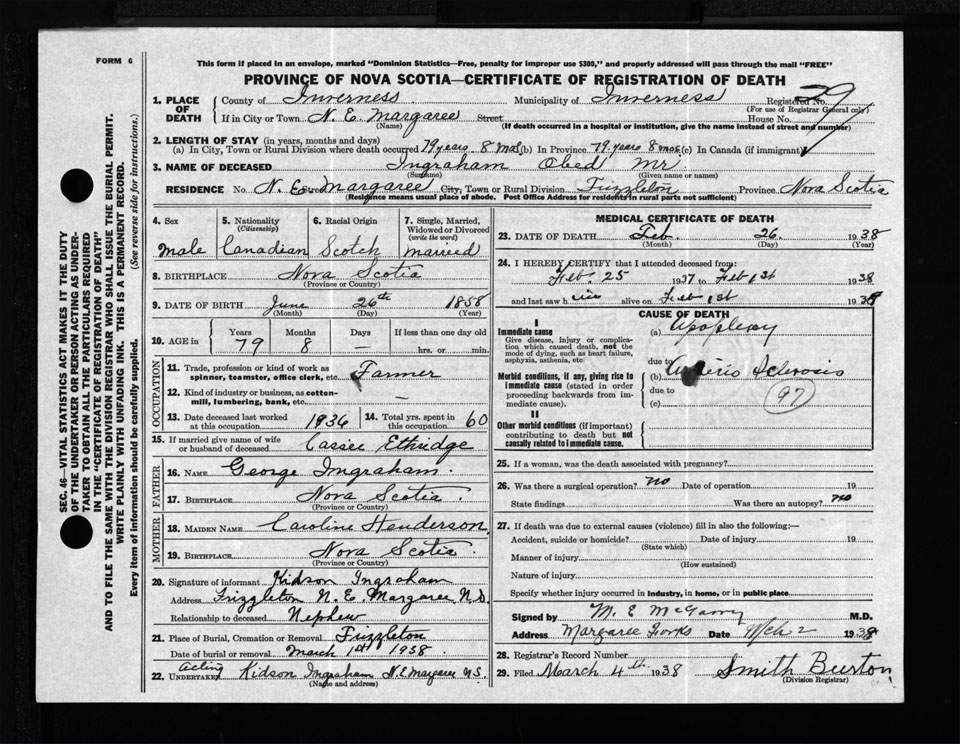 FORM 6
This form if placed in an envelope, marked "Dominion Statistics—Free, penalty for improper use $300," and properly addressed will pass through the mail "FREE"
PROVINCE OF NOVA SCOTIA—CERTIFICATE OF REGISTRATION OF DEATH
1. PLACE OF DEATH
County of Inverness Municipality of Inverness Registered No. 29
(For use of Registrar General only)
If in City or Town N. E. Margaree Street House No.
(Name) (If death occurred in a hospital or institution, give the name instead of street and number)
2. LENGTH OF STAY (in years, months and days)
(a) In City, Town or Rural Division where death occurred 79 years 8 mos (b) In Province 79 years 8 mos (c) In Canada (if immigrant)
3. NAME OF DECEASED Ingraham Obed Mr
(Surname) (Given name or names)
RESIDENCE No. N. E. Street Margaree City, Town or Rural Division Frizzleton Province Nova Scotia
(Residence means usual place of abode. Post Office Address for residents in rural parts not sufficient)
4. Sex
Male
5. Nationality
(Citizenship)
Canadian
6. Racial Origin
Scotch
7. Single, Married, Widowed or Divorced
(write the word)
married
8. BIRTHPLACE Nova Scotia
(Province or Country)
9. DATE OF BIRTH June 26th 1858
(Month) (Day) (Year)
10. AGE in
Years Months Days If less than one day old
79 8 — hrs. or min.
OCCUPATION
11. Trade, profession or kind of work as spinner, teamster, office clerk, etc. Farmer
12. Kind of industry or business, as cotton-mill, lumbering, bank, etc. —
13. Date deceased last worked at this occupation 1936
14. Total yrs. spent in this occupation 60
15. If married give name of wife or husband of deceased Cassee Ethridge
FATHER
16. NAME George Ingraham.
17. BIRTHPLACE Nova Scotia.
(Province or Country)
MOTHER
18. MAIDEN NAME Caroline Henderson
19. BIRTHPLACE Nova Scotia.
(Province or Country)
20. Signature of informant Kidson Ingraham
Address Frizzleton N. E. Margaree N.S.
Relationship to deceased Nephew
21. Place of Burial, Cremation or Removal Frizzleton
Date of burial or removal March 1st 1938
Acting
22. UNDERTAKER Kidson Ingraham N.E. Margaree N.S.
(Name and address)
MEDICAL CERTIFICATE OF DEATH
23. DATE OF DEATH Feb. 26. 1938
(Month) (Day) (Year)
24. I HEREBY CERTIFY that I attended deceased from:
Feb. 25 1937 to Feb 1st 1938
and last saw him alive on Feb 1st 1938
CAUSE OF DEATH
I
Immediate cause
Give disease, injury or complication which caused death, not the mode of dying, such as heart failure, asphyxia, asthenia, etc.
(a) Apoplexy
due to
Morbid conditions, if any, giving rise to immediate cause (stated in order proceeding backwards from immediate cause).
(b) Arterio Sclerosis
due to 97
(c)
II
Other morbid conditions (if important) contributing to death but not causally related to immediate cause.
25. If a woman, was the death associated with pregnancy?
26. Was there a surgical operation? no Date of operation 19
State findings Was there an autopsy? no
27. If death was due to external causes (violence) fill in also the following:—
Accident, suicide or homicide? Date of injury 19
(State which)
Manner of injury
(How sustained)
Nature of injury
Specify whether injury occurred in industry, in home, or in public place
Signed by M. E McGarry M.D.
Address Margaree Forks Date Mch 2 1938
28. Registrar's Record Number
29. Filed March 4th. 1938 Smith Burton
(Division Registrar)
SEC. 46—VITAL STATISTICS ACT MAKES IT THE DUTY
OF THE UNDERTAKER OR PERSON ACTING AS UNDER-
TAKER TO OBTAIN ALL THE PARTICULARS REQUIRED
IN THE "CERTIFICATE OF REGISTRATION OF DEATH"
AND TO FILE THE SAME WITH THE DIVISION REGISTRAR WHO SHALL ISSUE THE BURIAL PERMIT.
WRITE PLAINLY WITH UNFADING INK. THIS IS A PERMANENT RECORD.
Every item of information should be carefully supplied. (See reverse side for instructions.)